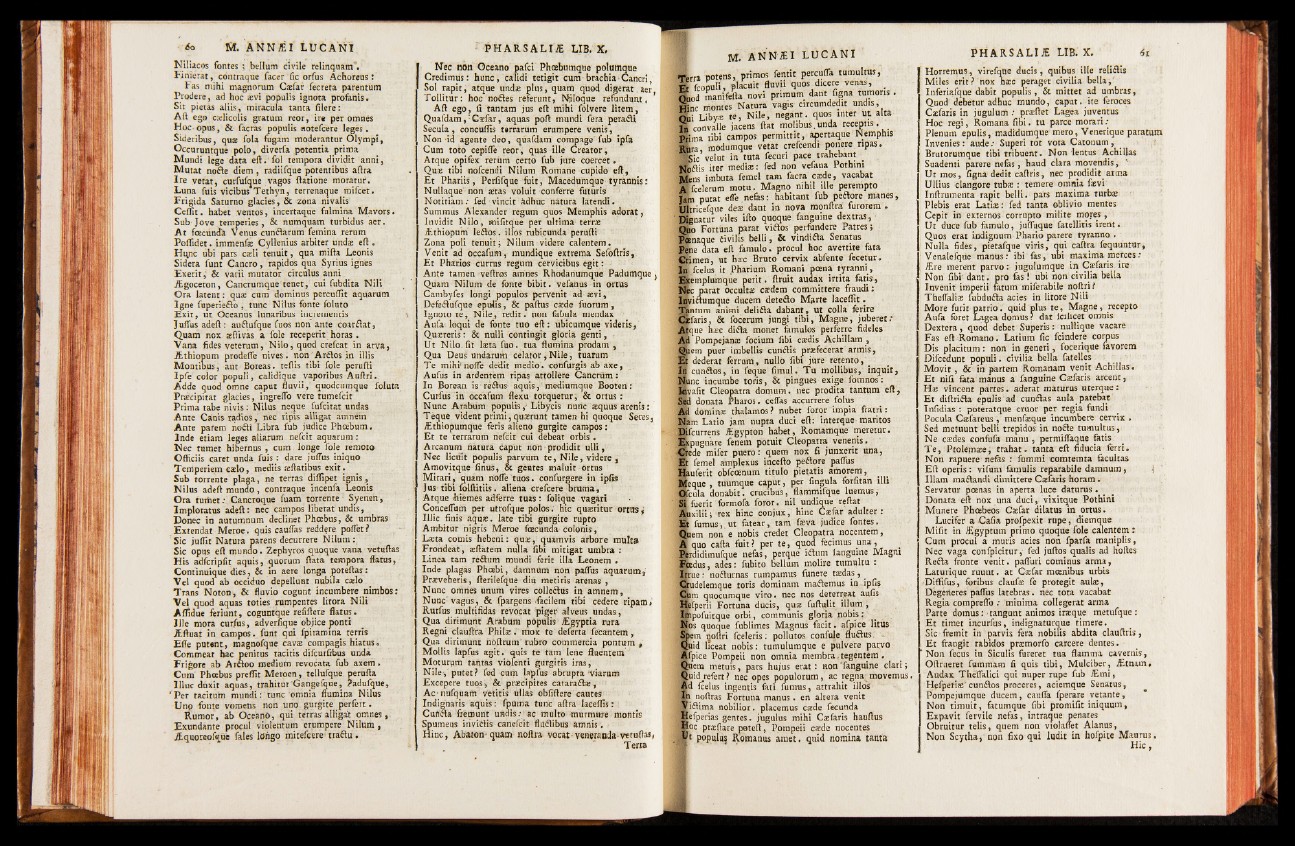 60 M. ANNÆI LUCANI
Niliacos fontes; bellum civile relinquam.
Finierat, contraque ſacer ſic orſus Achoreus:
Fas mihi magnorum Cæſar ſecreta parentum
Prodere, ad hoc ævi populis ignota profanis.
Sit pietas aliis, miracula tanta ſilere:
Aſt ego cælicolis gratum reor, ire per omnes
Hoc opus, & ſacras populis noteſcere leges.
Sideribus, quæ ſola fugam moderantur Olympi,
Occuruntque polo, diverſa potentia prima
Mundi lege data eſt. ſol tempora dividit anni,
Mutat nocte diem, radiiſque potentibus aſtra
Ire vetat, curſuſque vagos ſtatione moratur.
Luna ſuis vicibus Tethyn, terrenaque miſcet.
Frigida Saturno glacies, & zona nivalis
Ceſſit. habet ventos, incertaque fulmina Mavors.
Sub Jove temperies, & numquam turbidus aer.
At fœcunda Venus cunctarum ſemina rerum
Poſſidet. immenſæ Cyllenius arbiter undæ eſt.
Hunc ubi pars cæli tenuit, qua miſta Leonis
Sidera ſunt Cancro, rapidos qua Syrius ignes
Exerit, & varii mutator circulus anni
Ægoceron, Cancrumque tenet, cui ſubdita Nili
Ora latent: quæ cum dominus percuſſit aquarum
Igne ſuperiecto, tunc Nilus fonte ſoluto
Exit, ut Oceanus lunaribus incrementis
Juſſus adeſt: auctuſque ſuos non ante coarctat,
Quam nox æſtivas a ſole receperit horas.
Vana fides veterum, Nilo, quod creſcat in arva,
Æthiopum prodeſſe nives. non Arctos in illis
Montibus, aut Boreas. teſtis tibi ſole peruſti
Ipſe color populi, calidique vaporibus Auſtri.
Adde quod omne caput fluvii, quodcumque ſoluta
Præcipitat glacies, ingreſſo vere tumeſcit
Prima tabe nivis: Nilus neque ſuſcitat undas
Ante Canis radios, nec ripis alligat amnem
Ante parem nocti Libra ſub judice Phœbum.
Inde etiam leges aliarum neſcit aquarum:
Nec tumet hibernus, cum longe ſole remoto
Officiis caret unda ſuis: dare juſſus iniquo
Temperiem cælo, mediis æſtatibus exit.
Sub torrente plaga, ne terras diſſipet ignis,
Nilus adeſt mundo, contraque incenſa Leonis
Ora tumet: Cancroque ſuam torrente Syenen,
Imploratus adeſt: nec campos liberat undis,
Donec in autumnum declinet Phœbus, & umbras
Extendat Meroe. quis cauſſas reddere poſſet?
Sic juſſit Natura parens decurrere Nilum:
Sic opus eſt mundo. Zephyros quoque vana vetuſtas
His adſcripſit aquis, quorum ſtata tempora flatus,
Continuique dies, & in aere longa poteſtas:
Vel quod ab occiduo depellunt nubila cælo
Trans Noton, & fluvio cogunt incumbere nimbos:
Vel quod aquas toties rumpentes litora Nili
Aſſidue feriunt, coguntque reſiſtere flatus.
Ille mora curſus, adverſique objice ponti
Æſtuat in campos. ſunt qui ſpiramina terris
Eſſe putent, magnoſque cavæ compagis hiatus.
Commeat hac penitus tacitis diſcurſibus unda
Frigore ab Arctoo medium revocata ſub axem.
Cum Phœbus preſſit Meroen, telluſque peruſta
Illuc duxit aquas, trahitur Gangeſque, Paduſque,
Per tacitum mundi: tunc omnia flumina Nilus
Uno fonte vomens non uno gurgite perfert.
Rumor, ab Oceano, qui terras alligat omnes,
Exundante procul violentum erumpere Nilum,
Æquoreoſque ſales longo miteſcere tractu.
PHARSALIÆ LIB. X.
Nec non Oceano paſci Phœbumque polumque
Credimus: hunc, calidi tetigit cum brachia Cancri,
Sol rapit, atque undæ plus, quam quod digerat aer,
Tollitur: hoc noctes referunt, Niloque refundunt.
Aſt ego, ſi tantam jus eſt mihi ſolvere litem,
Quaſdam, Cæſar, aquas poſt mundi ſera peracti
Secula, concuſſis terrarum erumpere venis,
Non id agente deo, quaſdam compage ſub ipſa
Cum toto cepiſſe reor, quas ille Creator,
Atque opifex rerum certo ſub jure coercet.
Quæ tibi noſcendi Nilum Romane cupido eſt,
Et Phariis, Perſiſque fuit, Macedumque tyrannis:
Nullaque non ætas voluit conferre futuris
Notitiam: ſed vincit adhuc natura latendi.
Summus Alexander regum quos Memphis adorat,
Invidit Nilo, miſitque per ultima terræ
Æthiopum lectos. illos rubicunda peruſti
Zona poli tenuit; Nilum videre calentem.
Venit ad occaſum, mundique extrema Seſoſtris,
Et Pharios currus regum cervicibus egit:
Ante tamen veſtros amnes Rhodanumque Padumque,
Quam Nilum de fonte bibit. veſanus in ortus
Cambyſes longi populos pervenit ad ævi,
Defectuſque epulis, & paſtus cæde ſuorum,
Ignoto te, Nile, redit. non fabula mendax
Auſa loqui de fonte tuo eſt: ubicumque videris,
Quæreris: & nulli contingit gloria genti,
Ut Nilo ſit læta ſuo. tua flumina prodam,
Qua Deus undarum celator, Nile, tuarum
Te mihi noſſe dedit medio. conſurgis ab axe,
Auſus in ardentem ripas attollere Cancrum:
In Borean is rectus aquis, mediumque Booten:
Curſus in occaſum flexu torquetur, & ortus:
Nunc Arabum populis, Libycis nunc æquus arenis:
Teque vident primi, quærunt tamen hi quoque Seres,
Æthiopumque feris alieno gurgite campos:
Et te terrarum neſcit cui debeat orbis.
Arcanum natura caput non prodidit ulli,
Nec licuit populis parvum te, Nile, videre,
Amovitque ſinus, & gentes maluit ortus
Mirari, quam noſſe tuos. conſurgere in ipſis
Jus tibi ſolſtitiis. aliena creſcere bruma,
Atque hiemes adferre tuas: ſolique vagari
Conceſſum per utroſque polos. hic quæritur ortus,
Illic finis aquæ. late tibi gurgite rupto
Ambitur nigris Meroe fœcunda colonis,
Læta comis hebeni: quæ, quamvis arbore multa
Frondeat, æſtatem nulla ſibi mitigat umbra:
Linea tam rectum mundi ferit illa Leonem.
Inde plagas Phœbi, damnum non paſſus aquarum,
Præveheris, ſterileſque diu metiris arenas,
Nunc omnes unum vires collectus in amnem,
Nunc vagus, & ſpargens facilem tibi cedere ripam,
Rurſus multifidas revocat piger alveus undas,
Qua dirimunt Arabum populis Ægyptia rura
Regni clauſtra Philæ. mox te deſerta ſecantem,
Qua dirimunt noſtrum rubro commercia pontum,
Mollis lapſus agit. quis te tam lene fluentem
Moturum tantas violenti gurgitis iras,
Nile, putet? ſed cum lapſus abrupta viarum
Excepere tuos, & præcipites cataractæ,
Ac nuſquam vetitis ullas obſiſtere cautes
Indignaris aquis: ſpuma tunc aſtra laceſſis:
Cuncta fremunt undis: ac multo murmure montis
Spumeus invictis caneſcit fluctibus amnis.
Hinc, Abaton quam noſtra vocat veneranda vetuſtas,
Terra
M. ANNÆI LUCANI
Terra potens, primos ſentit percuſſa tumultus,
Et ſcopuli, placuit fluvii quos dicere venas,
Quod manifeſta novi primum dant ſigna tumoris.
Hinc montes Natura vagis circumdedit undis,
Qui Libyæ te, Nile, negant. quos inter ut alta
In convalle jacens ſtat molibus unda receptis.
Prima tibi campos permittit, apertaque Memphis
Rura, modumque vetat creſcendi ponere ripas.
Sic velut in tuta ſecuri pace trahebant
Noctis iter mediæ: ſed non veſana Pothini
Mens imbuta ſemel tam ſacra cæde, vacabat
A ſcelerum motu. Magno nihil ille perempto
Jam putat eſſe nefas: habitant ſub pectore manes,
Ultriceſque deæ dant in nova monſtra furorem.
Dignatur viles iſto quoque ſanguine dextras,
Quo Fortuna parat victos perfundere Patres;
Pœnaque civilis belli, & vindicta Senatus
Pene data eſt famulo. procul hoc avertite fata
Crimen, ut hæc Bruto cervix abſente ſecetur.
In ſcelus it Pharium Romani pœna tyranni,
Exemplumque perit. ſtruit audax irrita fatis,
Nec parat occultæ cædem committere fraudi:
Invictumque ducem detecto Marte laceſſit.
Tantum animi delicta dabant, ut colla ferire
Cæſaris, & ſocerum jungi tibi, Magne, juberet:
Atque hæc dicta monet famulos perferre fideles
Ad Pompejanæ ſocium ſibi cædis Achillam,
Quem puer imbellis cunctis præfecerat armis,
Et dederat ferrum, nullo ſibi jure retento,
In cunctos, in ſeque ſimul. Tu mollibus, inquit,
Nunc incumbe toris, & pingues exige ſomnos:
Invaſit Cleopatra domum. nec prodita tantum eſt,
Sed donata Pharos. ceſſas accurrere ſolus
Ad dominæ thalamos? nubet ſoror impia fratri:
Nam Latio jam nupta duci eſt: interque maritos
Diſcurrens Ægypton habet, Romamque meretur.
Expugnare ſenem potuit Cleopatra venenis.
Crede miſer puero: quem nox ſi junxerit una,
Et ſemel amplexus inceſto pectore paſſus
Hauſerit obſcœnum titulo pietatis amorem,
Meque, tuumque caput, per ſingula forſitan illi
Oſcula donabit. crucibus, flammiſque luemus,
Si fuerit formoſa ſoror. nil undique reſtat
Auxilii, rex hinc conjux, hinc Cæſar adulter:
Et ſumus, ut fatear, tam ſæva judice ſontes.
Quem non e nobis credet Cleopatra nocentem,
A quo caſta fuit? per te, quod fecimus una,
Perdidimuſque nefas, perque ictum ſanguine Magni
Fœdus, ades: ſubito bellum molire tumultu:
Irrue: nocturnas rumpamus funere tædas,
Crudelemque toris dominam mactemus in ipſis
Cum quocumque viro. nec nos deterreat auſis
Heſperii Fortuna ducis, quæ ſuſtulit illum,
Impoſuitque orbi, communis gloria nobis:
Nos quoque ſublimes Magnus facit. aſpice litus
Spem noſtri ſceleris: pollutos conſule fluctus
Quid liceat nobis: tumulumque e pulvere parvo
Aſpice Pompeii non omnia membra tegentem.
Quem metuis, pars hujus erat: non ſanguine clari;
Quid refert? nec opes populorum, ac regna movemus.
Ad ſcelus ingentis fati ſumus, attrahit illos
In noſtras Fortuna manus. en altera venit
Victima nobilior. placemus cæde ſecunda
Heſperias gentes. jugulus mihi Cæſaris hauſtus
Hoc præſtare poteſt, Pompeii cæde nocentes
Ut populus Romanus amet. quid nomina tanta
PHARSALIÆ LIB. X. 61
Horremus, vireſque ducis, quibus ille relictis
Miles erit? nox hæc peraget civilia bella,
Inferiaſque dabit populis, & mittet ad umbras,
Quod debetur adhuc mundo, caput. ite feroces
Cæſaris in jugulum: præſtet Lagea juventus
Hoc regi, Romana ſibi. tu parce morari:
Plenum epulis, madidumque mero, Venerique paratum
Invenies: aude: Superi tot vota Catonum,
Brutorumque tibi tribuent. Non lentus Achillas
Suadenti parere nefas, haud clara movendis,
Ut mos, ſigna dedit caſtris, nec prodidit arma
Ullius clangore tubæ: temere omnia ſævi
Inſtrumenta rapit belli. pars maxima turbæ
Plebis erat Latiæ: ſed tanta oblivio mentes
Cepit in externos corrupto milite mores,
Ut duce ſub famulo, juſſuque ſatellitis irent.
Quos erat indignum Phario parere tyranno.
Nulla fides, pietaſque viris, qui caſtra ſequuntur,
Venaleſque manus: ibi fas, ubi maxima merces:
Ære merent parvo: jugulumque in Cæſaris ire
Non ſibi dant. pro fas! ubi non civilia bella
Invenit imperii fatum miſerabile noſtri?
Theſſaliæ ſubducta acies in litore Nili
More furit patrio. quid plus te, Magne, recepto
Auſa foret Lagea domus? dat ſcilicet omnis
Dextera, quod debet Superis: nullique vacare
Fas eſt Romano. Latium ſic ſcindere corpus
Dis placitum: non in generi, ſocerique favorem
Diſcedunt populi. civilia bella ſatelles
Movit, & in partem Romanam venit Achillas.
Et niſi fata manus a ſanguine Cæſaris arcent,
Hæ vincent partes. aderat maturus uterque:
Et diſtricta epulis ad cunctas aula patebat
Inſidias: poteratque cruor per regia fundi
Pocula Cæſareus, menſæque incumbere cervix.
Sed metuunt belli trepidos in nocte tumultus,
Ne cædes confuſa manu, permiſſaque fatis
Te, Ptolemæe, trahat. tanta eſt fiducia ferri.
Non rapuere nefas: ſummi contemta facultas
Eſt operis: viſum famulis reparabile damnum,
Illam mactandi dimittere Cæſaris horam.
Servatur pœnas in aperta luce daturus.
Donata eſt nox una duci, vixitque Pothini
Munere Phœbeos Cæſar dilatus in ortus.
Lucifer a Caſia proſpexit rupe, diemque
Miſit in Ægyptum primo quoque ſole calentem:
Cum procul a muris acies non ſparſa maniplis,
Nec vaga conſpicitur, ſed juſtos qualis ad hoſtes
Recta fronte venit. paſſuri cominus arma,
Laturique ruunt. at Cæſar mœnibus urbis
Diffiſus, foribus clauſæ ſe protegit aulæ,
Degeneres paſſus latebras. nec tota vacabat
Regia compreſſo: minima collegerat arma
Parte domus: tangunt animos iræque metuſque:
Et timet incurſus, indignaturque timere.
Sic fremit in parvis fera nobilis abdita clauſtris,
Et frangit rabidos præmorſo carcere dentes.
Non ſecus in Siculis fureret tua flamma cavernis,
Oſtrueret ſummam ſi quis tibi, Mulciber, Ætnam.
Audax Theſſalici qui nuper rupe ſub Æmi,
Heſperiæ cunctos proceres, aciemque Senatus,
Pompejumque ducem, cauſſa ſperare vetante,
Non timuit, fatumque ſibi promiſit iniquum,
Expavit ſervile nefas, intraque penates
Obruitur telis, quem non violaſſet Alanus,
Non Scytha, non fixo qui ludit in hoſpite Maurus.
Hic,